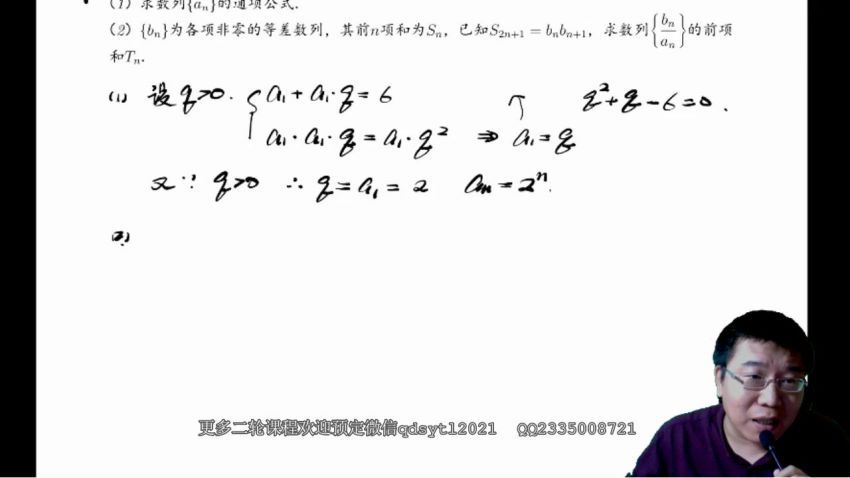 (1) 求数列{aₙ}的通项公式.
(2) {bₙ}为各项非零的等差数列，其前n项和为Sₙ，已知S₂ₙ₊₁ = bₙbₙ₊₁，求数列{bₙ/aₙ}的前项
和Tₙ.
(1) 设 q>0. { a₁ + a₁·q = 6 ↑ q² + q − 6 = 0.
a₁·a₁·q = a₁·q² ⇒ a₁ = q
又∵ q>0 ∴ q = a₁ = 2 aₙ = 2ⁿ.
(2)
更多二轮课程欢迎预定微信qdsytl2021 QQ2335008721